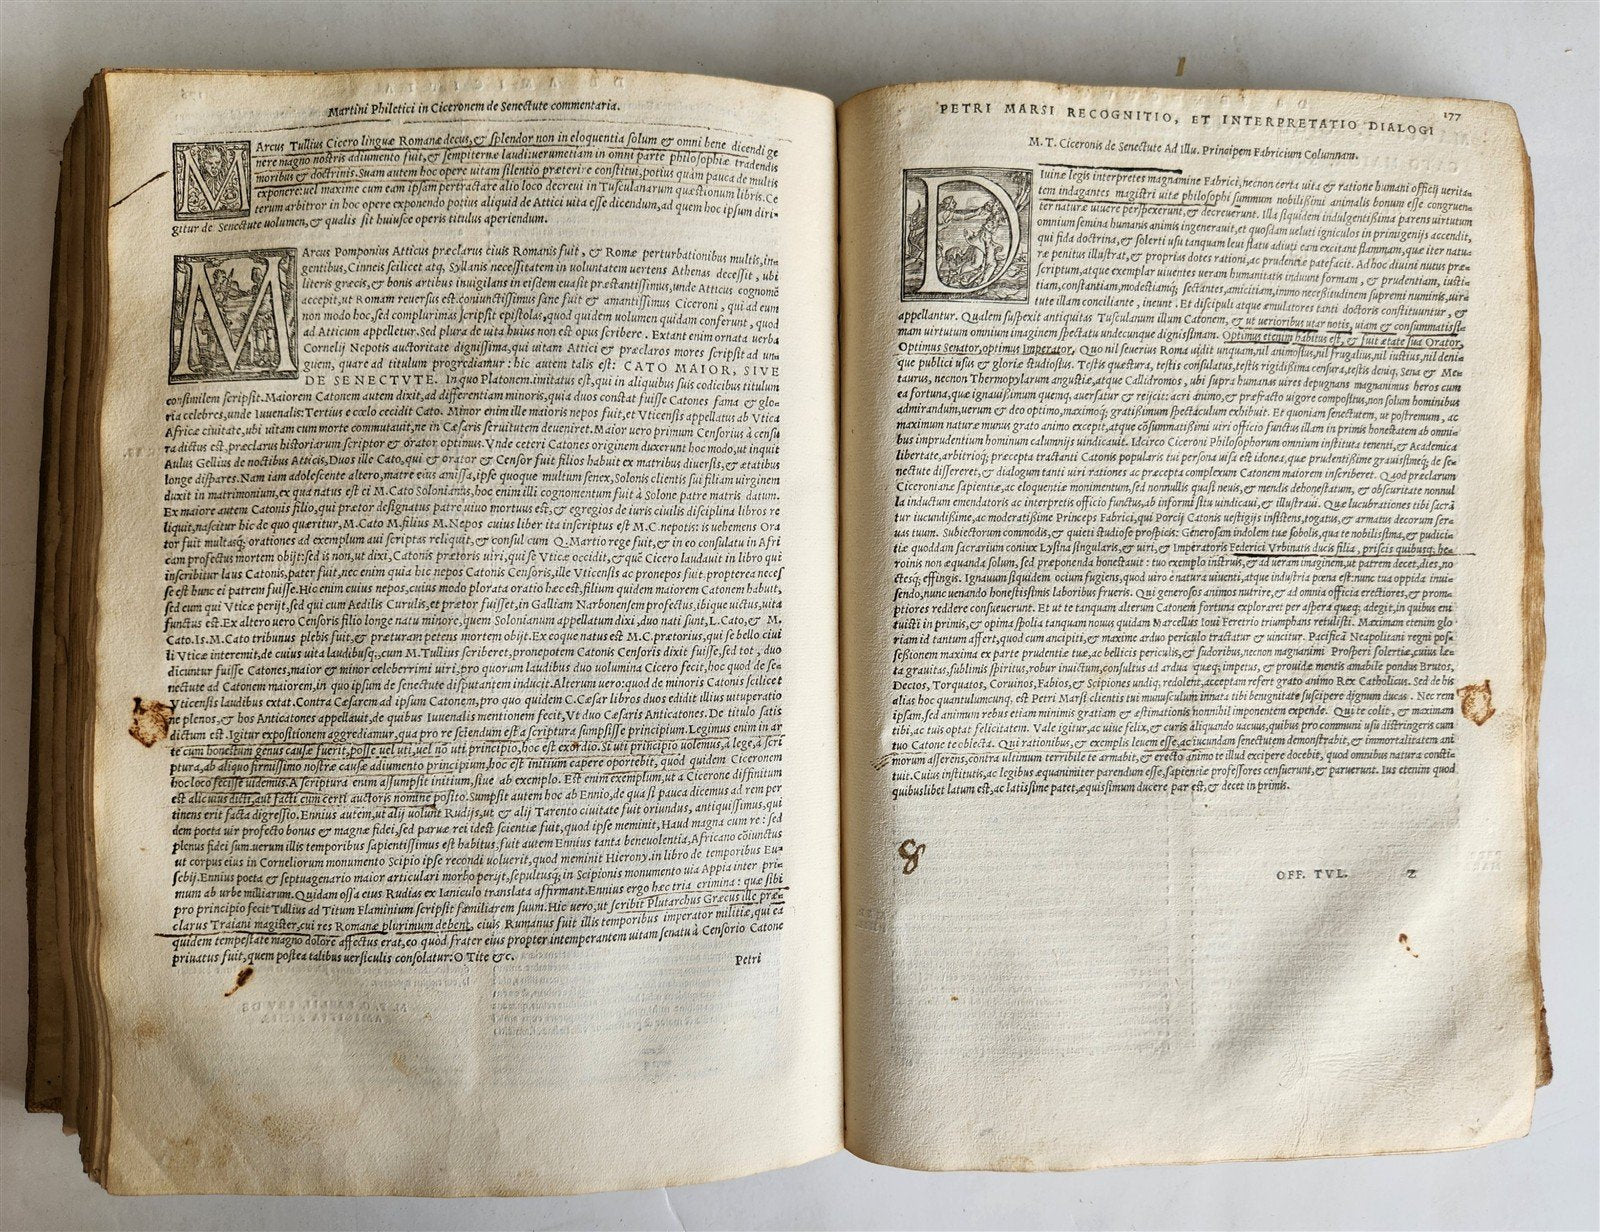 Martini Philetici in Ciceronem de Senectute commentaria.
MArcus Tullius Cicero linguæ Romanæ decus,& splendor non in eloquentia solum & omni bene dicendi ge
nere magno nostris adiumento fuit,& sempiternæ laudi:uerumetiam in omni parte philosophiæ tradendis
moribus & doctrinis.Suam autem hoc opere uitam silentio præterire constitui,potius quàm pauca de multis
exponere:uel maxime cum eam ipsam pertractare alio loco decreui in Tusculanarum quæstionum libris.Ce
terum arbitror in hoc opere exponendo potius aliquid de Attici uita esse dicendum,ad quem hoc ipsum diri
gitur de Senectute uolumen,& qualis sit huiusce operis titulus aperiendum.
MArcus Pomponius Atticus præclarus ciuis Romanis fuit, & Romæ perturbationibus multis,in-
gentibus,Cinneis scilicet atq; Syllanis necessitatem in uoluntatem uertens Athenas decessit, ubi
literis græcis,& bonis artibus inuigilans in eisdem euasit præstantissimus,unde Atticus cognomē
accepit,ut Romam reuersus est.coniunctissimus sane fuit & amantissimus Ciceroni, qui ad eum
non modo hoc,sed complurimas scripsit epistolas,quod quidem uolumen quidam conferunt, quod
ad Atticum appelletur.Sed plura de uita huius non est opus scribere. Extant enim ornata uerba
Cornelij Nepotis auctoritate dignissima,qui uitam Attici & præclaros mores scripsit ad un
guem, quare ad titulum progrediamur: hic autem talis est: CATO MAIOR, SIVE
DE SENECTVTE. In quo Platonem.imitatus est,qui in aliquibus suis codicibus titulum
consimilem scripsit.Maiorem Catonem autem dixit,ad differentiam minoris,quia duos constat fuisse Catones fama & glo-
ria celebres,unde Iuuenalis:Tertius e cœlo cecidit Cato. Minor enim ille maioris nepos fuit,et Vticensis appellatus ab Vtica
Africæ ciuitate,ubi uitam cum morte commutauit,ne in Cæsaris seruitutem deueniret.Maior uero primum Censorius à censu
ra dictus est,præclarus historiarum scriptor & orator optimus.Vnde ceteri Catones originem duxerunt hoc modo,ut inquit
Aulus Gellius de noctibus Atticis,Duos ille Cato,qui & orator & Censor fuit filios habuit ex matribus diuersis,& ætatibus
longe dispares.Nam iam adolescente altero,matre eius amissa,ipse quoque multum senex,Solonis clientis sui filiam uirginem
duxit in matrimonium,ex qua natus est ei M.Cato Solonianus,hoc enim illi cognomentum fuit à Solone patre matris datum.
Ex maiore autem Catonis filio,qui prætor designatus patre uiuo mortuus est,& egregios de iuris ciuilis disciplina libros re
liquit,nascitur hic de quo quæritur,M.Cato M.filius M.Nepos cuius liber ita inscriptus est M.C.nepotis:is uehemens Ora
tor fuit multasq; orationes ad exemplum aui scriptas reliquit,& consul cum Q.Martio rege fuit,& in eo consulatu in Afri
cam profectus mortem obijt:sed is non,ut dixi,Catonis prætoris uiri,qui se Vticæ occidit,& quē Cicero laudauit in libro qui
inscribitur laus Catonis,pater fuit,nec enim quia hic nepos Catonis Censoris,ille Vticensis ac pronepos fuit.propterea neces
se est hunc ei patrem fuisse.Hic enim euius nepos,cuius modo plorata oratio hæc est,filium quidem maiorem Catonem habuit,
sed eum qui Vticæ perijt,sed qui cum Aedilis Curulis,et prætor fuisset,in Galliam Narbonensem profectus,ibique uictus,uita
functus est.Ex altero uero Censoris filio longe natu minore,quem Solonianum appellatum dixi,duo nati sunt,L.Cato,& M.
Cato.Is.M.Cato tribunus plebis fuit,& præturam petens mortem obijt.Ex eoque natus est M.C.prætorius,qui se bello ciui
li Vticæ interemit,de cuius uita laudibusq;,cum M.Tullius scriberet,pronepotem Catonis Censoris dixit fuisse,sed tot, duo
dicuntur fuisse Catones,maior & minor celeberrimi uiri,pro quorum laudibus duo uolumina Cicero fecit,hoc quod de se-
nectute ad Catonem maiorem,in quo ipsum de senectute disputantem inducit.Alterum uero:quod de minoris Catonis scilicet
Vticensis laudibus extat.Contra Cæsarem ad ipsum Catonem,pro quo quidem C.Cæsar libros duos edidit illius uituperatio
ne plenos,& hos Anticatones appellauit,de quibus Iuuenalis mentionem fecit,Vt duo Cæsaris Anticatones. De titulo satis
dictum est.Igitur expositionem aggrediamur,qua pro re sciendum est a scriptura sumpsisse principium.Legimus enim in ar
te cum honestum genus causæ fuerit,posse uel uti,uel nō uti principio,hoc est exordio.Si uti principio uolemus,a lege,a scri
ptura,ab aliquo firmissimo nostræ causæ adiumento principium,hoc est initium capere oportebit, quod quidem Ciceronem
hoc loco fecisse uidemus.A scriptura enim assumpsit initium,siue ab exemplo. Est enim exemplum,ut a Cicerone diffinitum
est alicuius dicti,aut facti cum certi auctoris nomine posito.Sumpsit autem hoc ab Ennio,de qua si pauca dicemus ad rem per
tinens erit facta digressio.Ennius autem,ut alij uolunt Rudijs,ut & alij Tarento ciuitate fuit oriundus, antiquissimus,qui
dem poeta uir profecto bonus & magnæ fidei,sed paruæ rei idest scientiæ fuit,quod ipse meminit, Haud magna cum re: sed
plenus fidei sum.uerum illis temporibus sapientissimus est habitus,fuit autem Ennius tanta beneuolentia,Africano cōiunctus
ut corpus eius in Corneliorum monumento Scipio ipse recondi uoluerit,quod meminit Hierony.in libro de temporibus Eu
sebij.Ennius poeta & septuagenario maior articulari morbo perijt,sepultusq; in Scipionis monumento uia Appia inter pri-
mum ab urbe milliarium. Quidam ossa eius Rudias ex Ianiculo translata affirmant.Ennius ergo hæc tria crimina: quæ sibi
pro principio fecit Tullius ad Titum Flaminium scripsit familiarem suum.Hic uero,ut scribit Plutarchus Græcus ille præ-
clarus Traiani magister,cui res Romanæ plurimum debent, ciuis Rumanus fuit illis temporibus imperator militiæ,qui ea
quidem tempestate magno dolore affectus erat,eo quod frater eius propter intemperantem uitam senatu à Censorio Catone
priuatus fuit,quem postea talibus uersiculis consolatur:O Tite &c.
Petri
PETRI MARSI RECOGNITIO, ET INTERPRETATIO DIALOGI
177
M.T. Ciceronis de Senectute Ad Illu. Principem Fabricium Columnam.
DIuinæ legis interpretes magnamine Fabrici,necnon certa uita & ratione humani officij uerita-
tem indagantes magistri uitæ philosophi summum nobilissimi animalis bonum esse congruen-
ter naturæ uiuere perspexerunt,& decreuerunt. Illa siquidem indulgentissima parens uirtutum
omnium semina humanis animis ingenerauit,et quosdam ueluti igniculos in primigenijs accendit,
qui fida doctrina,& solerti usu tanquam leui flatu adiuti eam excitant flammam,quæ iter natu-
ræ penitus illustrat,& proprias dotes rationi,ac prudentiæ patefacit. Ad hoc diuini nutus præ-
scriptum,atque exemplar uiuentes ueram humanitatis induunt formam , & prudentiam, iusti-
tiam,constantiam,modestiamq; sectantes,amicitiam,immo necessitudinem supremi numinis,uira
tute illam conciliante, ineunt. Et discipuli atque æmulatores tanti doctoris constituuntur, &
appellantur. Qualem suspexit antiquitas Tusculanum illum Catonem, & ut uerioribus utar notis, uiam & consummatissi-
mam uirtutum omnium imaginem spectatu undecunque dignissimam. Optimus etenim habitus est, & suit ætate sua Orator,
Optimus Senator,optimus Imperator. Quo nil seuerius Roma uidit unquam,nil animosius,nil frugalius,nil iustius,nil deni-
que publici usus & gloriæ studiosius. Testis quæstura, testis consulatus,testis rigidissima censura,testis deniq; Sena & Me-
taurus, necnon Thermopylarum angustiæ,atque Callidromos, ubi supra humanas uires depugnans magnanimus heros cum
ea fortuna,quæ ignauissimum quenq; auersatur & reijcit: acri animo,& præfracto uigore compositus,non solum hominibus
admirandum,uerum & deo optimo,maximoq; gratissimum spectaculum exhibuit. Et quoniam senectutem,ut postremum , ac
maximum naturæ munus grato animo excepit,atque cōsummatissimi uiri officio functus illam in primis honestatem ab omni-
bus imprudentium hominum calumnijs uindicauit. Idcirco Ciceroni Philosophorum omnium instituta tenenti,& Academica
libertate,arbitrioq; præcepta tractanti Catonis popularis tui persona uisa est idonea,quæ prudentissime grauissimeq; de se-
nectute dissereret,& dialogum tanti uiri rationes ac præcepta complexum Catonem maiorem inscriberet. Quod præclarum
Ciceronianæ sapientiæ,ac eloquentiæ monimentum,sed nonnullis quasi neuis,& mendis dehonestatum, & obscuritate nonnul
la inductum emendatoris ac interpretis officio functus,ab informi situ uindicaui,et illustraui. Quæ lucubrationes tibi sacrā
tur iucundissime,ac moderatissime Princeps Fabrici,qui Porcij Catonis uestigijs insistens,togatus,& armatus decorum ser-
uas tuum. Subiectorum commodis,& quieti studiose prospicis: Generosam indolem tuæ sobolis,qua te nobilissima,& pudici-
tiæ quoddam sacrarium coniux Lysina singularis,& uiri,& Imperatoris Federici Vrbinatis ducis filia , priscis quibusq; he-
roinis non æquanda solum,sed præponenda honestauit: tuo exemplo instruis,& ad ueram imaginem,ut patrem decet,dies,no
ctesq; effingis. Ignauum siquidem ocium fugiens,quod uiro ē natura uiuenti,atque industria pœna est:nunc tua oppida inui-
sendo,nunc uenando honestissimis laboribus frueris. Qui generosos animos nutrire,& ad omnia officia erectiores,& prom-
ptiores reddere consueuerunt. Et ut te tanquam alterum Catonem fortuna exploraret per aspera quæq; adegit,in quibus eni
tuisti in primis,& opima spolia tanquam nouus quidam Marcellus Ioui Feretrio triumphans retulisti. Maximam etenim glo-
riam id tantum affert,quod cum ancipiti,& maxime arduo periculo tractatur & uincitur. Pacificæ Neapolitani regni pos-
sessionem maxima ex parte prudentiæ tuæ,ac bellicis periculis,& sudoribus,necnon magnanimi Prosperi solertiæ,cuius læ-
ta grauitas,sublimis spiritus,robur inuictum,consultus ad ardua quæq; impetus,& prouidæ mentis amabile pondus Brutos,
Dectos,Torquatos, Coruinos,Fabios,& Scipiones undiq; redolent,acceptam refert grato animo Rex Catholicus. Sed de his
alias hoc quantulumcunq; est Petri Marsi clientis tui munusculum innata tibi benignitate suscipere dignum ducas . Nec rem
ipsam,sed animum rebus etiam minimis gratiam & æstimationis nonnihil imponentem expende. Qui te colit , & maximam
tibi,ac tuis optat felicitatem. Vale igitur,ac uiue felix,& curis aliquando uacuus,quibus pro communi usu distringeris cum
tuo Catone te oblecta. Qui rationibus,& exemplis leuem esse,ac iucundam senectutem demonstrabit,& immortalitatem ani
morum asserens,contra ultimum terribile te armabit,& erecto animo te illud excipere docebit,quod omnibus natura consti-
tuit.Cuius institutis,ac legibus æquanimiter parendum esse,sapientiæ professores censuerunt,& paruerunt. Ius etenim quod
quibuslibet latum est,ac latissime patet,æquissimum ducere par est,& decet in primis.
OFF. TVL.
Z